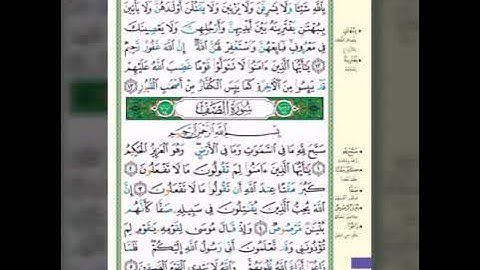 بِٱللَّهِ شَيْـًٔا وَلَا يَسْرِقْنَ وَلَا يَزْنِينَ وَلَا يَقْتُلْنَ أَوْلَٰدَهُنَّ وَلَا يَأْتِينَ
بِبُهْتَٰنٍ يَفْتَرِينَهُۥ بَيْنَ أَيْدِيهِنَّ وَأَرْجُلِهِنَّ وَلَا يَعْصِينَكَ
فِى مَعْرُوفٍ فَبَايِعْهُنَّ وَٱسْتَغْفِرْ لَهُنَّ ٱللَّهَ إِنَّ ٱللَّهَ غَفُورٌ رَّحِيمٌ
١٢ يَٰٓأَيُّهَا ٱلَّذِينَ ءَامَنُوا۟ لَا تَتَوَلَّوْا۟ قَوْمًا غَضِبَ ٱللَّهُ عَلَيْهِمْ
قَدْ يَئِسُوا۟ مِنَ ٱلْءَاخِرَةِ كَمَا يَئِسَ ٱلْكُفَّارُ مِنْ أَصْحَٰبِ ٱلْقُبُورِ ١٣
سُورَةُ الصَّفِّ
بِسْمِ ٱللَّهِ ٱلرَّحْمَٰنِ ٱلرَّحِيمِ
سَبَّحَ لِلَّهِ مَا فِى ٱلسَّمَٰوَٰتِ وَمَا فِى ٱلْأَرْضِ وَهُوَ ٱلْعَزِيزُ ٱلْحَكِيمُ
١ يَٰٓأَيُّهَا ٱلَّذِينَ ءَامَنُوا۟ لِمَ تَقُولُونَ مَا لَا تَفْعَلُونَ ٢
كَبُرَ مَقْتًا عِندَ ٱللَّهِ أَن تَقُولُوا۟ مَا لَا تَفْعَلُونَ ٣ إِنَّ
ٱللَّهَ يُحِبُّ ٱلَّذِينَ يُقَٰتِلُونَ فِى سَبِيلِهِۦ صَفًّا كَأَنَّهُم
بُنْيَٰنٌ مَّرْصُوصٌ ٤ وَإِذْ قَالَ مُوسَىٰ لِقَوْمِهِۦ يَٰقَوْمِ لِمَ
تُؤْذُونَنِى وَقَد تَّعْلَمُونَ أَنِّى رَسُولُ ٱللَّهِ إِلَيْكُمْ فَلَمَّا
زَاغُوٓا۟ أَزَاغَ ٱللَّهُ قُلُوبَهُمْ وَٱللَّهُ لَا يَهْدِى ٱلْقَوْمَ ٱلْفَٰسِقِينَ ٥